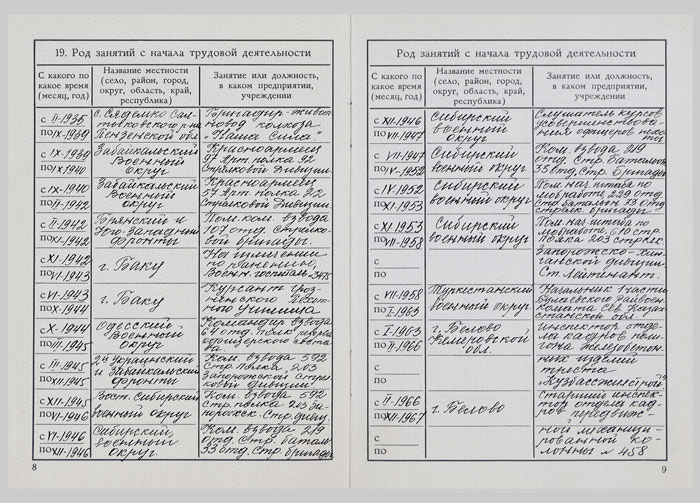 19. Род занятий с начала трудовой деятельности
С какого по какое время (месяц, год)
Название местности (село, район, город, округ, область, край, республика)
Занятие или должность, в каком предприятии, учреждении
с II-1935
по IX-1939
с. Сядемко
Пензенской обл.
Бригадир
колхоза
"Наша Сила"
с IX-1939
по X1940
Забайкальский
Военный
округ
Красноармеец
97 Арт. полка 92
Стрелковой Дивизии
с IX-1940
по II-1942
Забайкальский
Военный
округ
Красноармеец
Стрелковой Дивизии
с II-1942
по XI-1942
Брянский и
Юго-Западный
фронты
Пом. ком. взвода
107 отд. Стрелко-
вой бригады.
с XI-1942
по VI-1943
г. Баку
На излечении
по ранению,
с VI-1943
по X-1944
г. Баку
Курсант Гроз-
ненского Пехот-
ного училища
с X-1944
по II-1945
Одесский
Военный
округ
Командир взвода
офицерского состава
с II-1945
по XII-1945
2й Украинский
и Забайкальский
фронты
Ком. взвода 592
Стр. полка 203
Запорожской Стрел-
ковой Дивизии
с XII-1945
по VI-1946
Вост. Сибирский
военный округ
Ком. взвода 592
Стр. полка 203 За-
порожск. Стр. дивиз.
с VI-1946
по XII-1946
Сибирский
военный
округ.
Ком. взвода 219
отд. Стр. баталь.
33 отд. Стр. бригады
8
Род занятий с начала трудовой деятельности
С какого по какое время (месяц, год)
Название местности (село, район, город, округ, область, край, республика)
Занятие или должность, в каком предприятии, учреждении
с XII-1946
по VII-1947
Сибирский
военный
округ
Слушатель курсов
усовершенствова-
ния офицеров пехоты
с VII-1947
по IV-1952
Сибирский
военный округ
Ком. взвода 219
отд. Стр. батальона
33 отд. Стр. бригады
с IV-1952
по XI-1953
Сибирский
военный округ
Пом. нач. штаба по
моб. работе, 219 отд.
Стр. батальон 33 отд
стрелк. бригады.
с XI-1953
по VII-1958
Сибирский
военный округ
Пом. нач. штаба по
моб. работе, 610 стр.
полка 203 стрелк.
Запорожско-Хин-
ганской дивизии
Ст. Лейтенант.
с
по
с VII-1958
по I-1963
Туркестанский
военный округ
Начальник части
Булаевского Райвоен-
комата Сев. Казах-
станской обл.
с I-1963
по II-1966
г. Белово
Кемеровской
обл.
Инспектор отде-
ла кадров поли-
гона железобетон-
ных изделий
треста
"Кузбассжилстрой"
с
по
с II-1966
по XII-1967
г. Белово
Старший инспек-
тор отдела кад-
ров передвиж-
ной механизи-
рованной ко-
лонны N 458
с
по
9